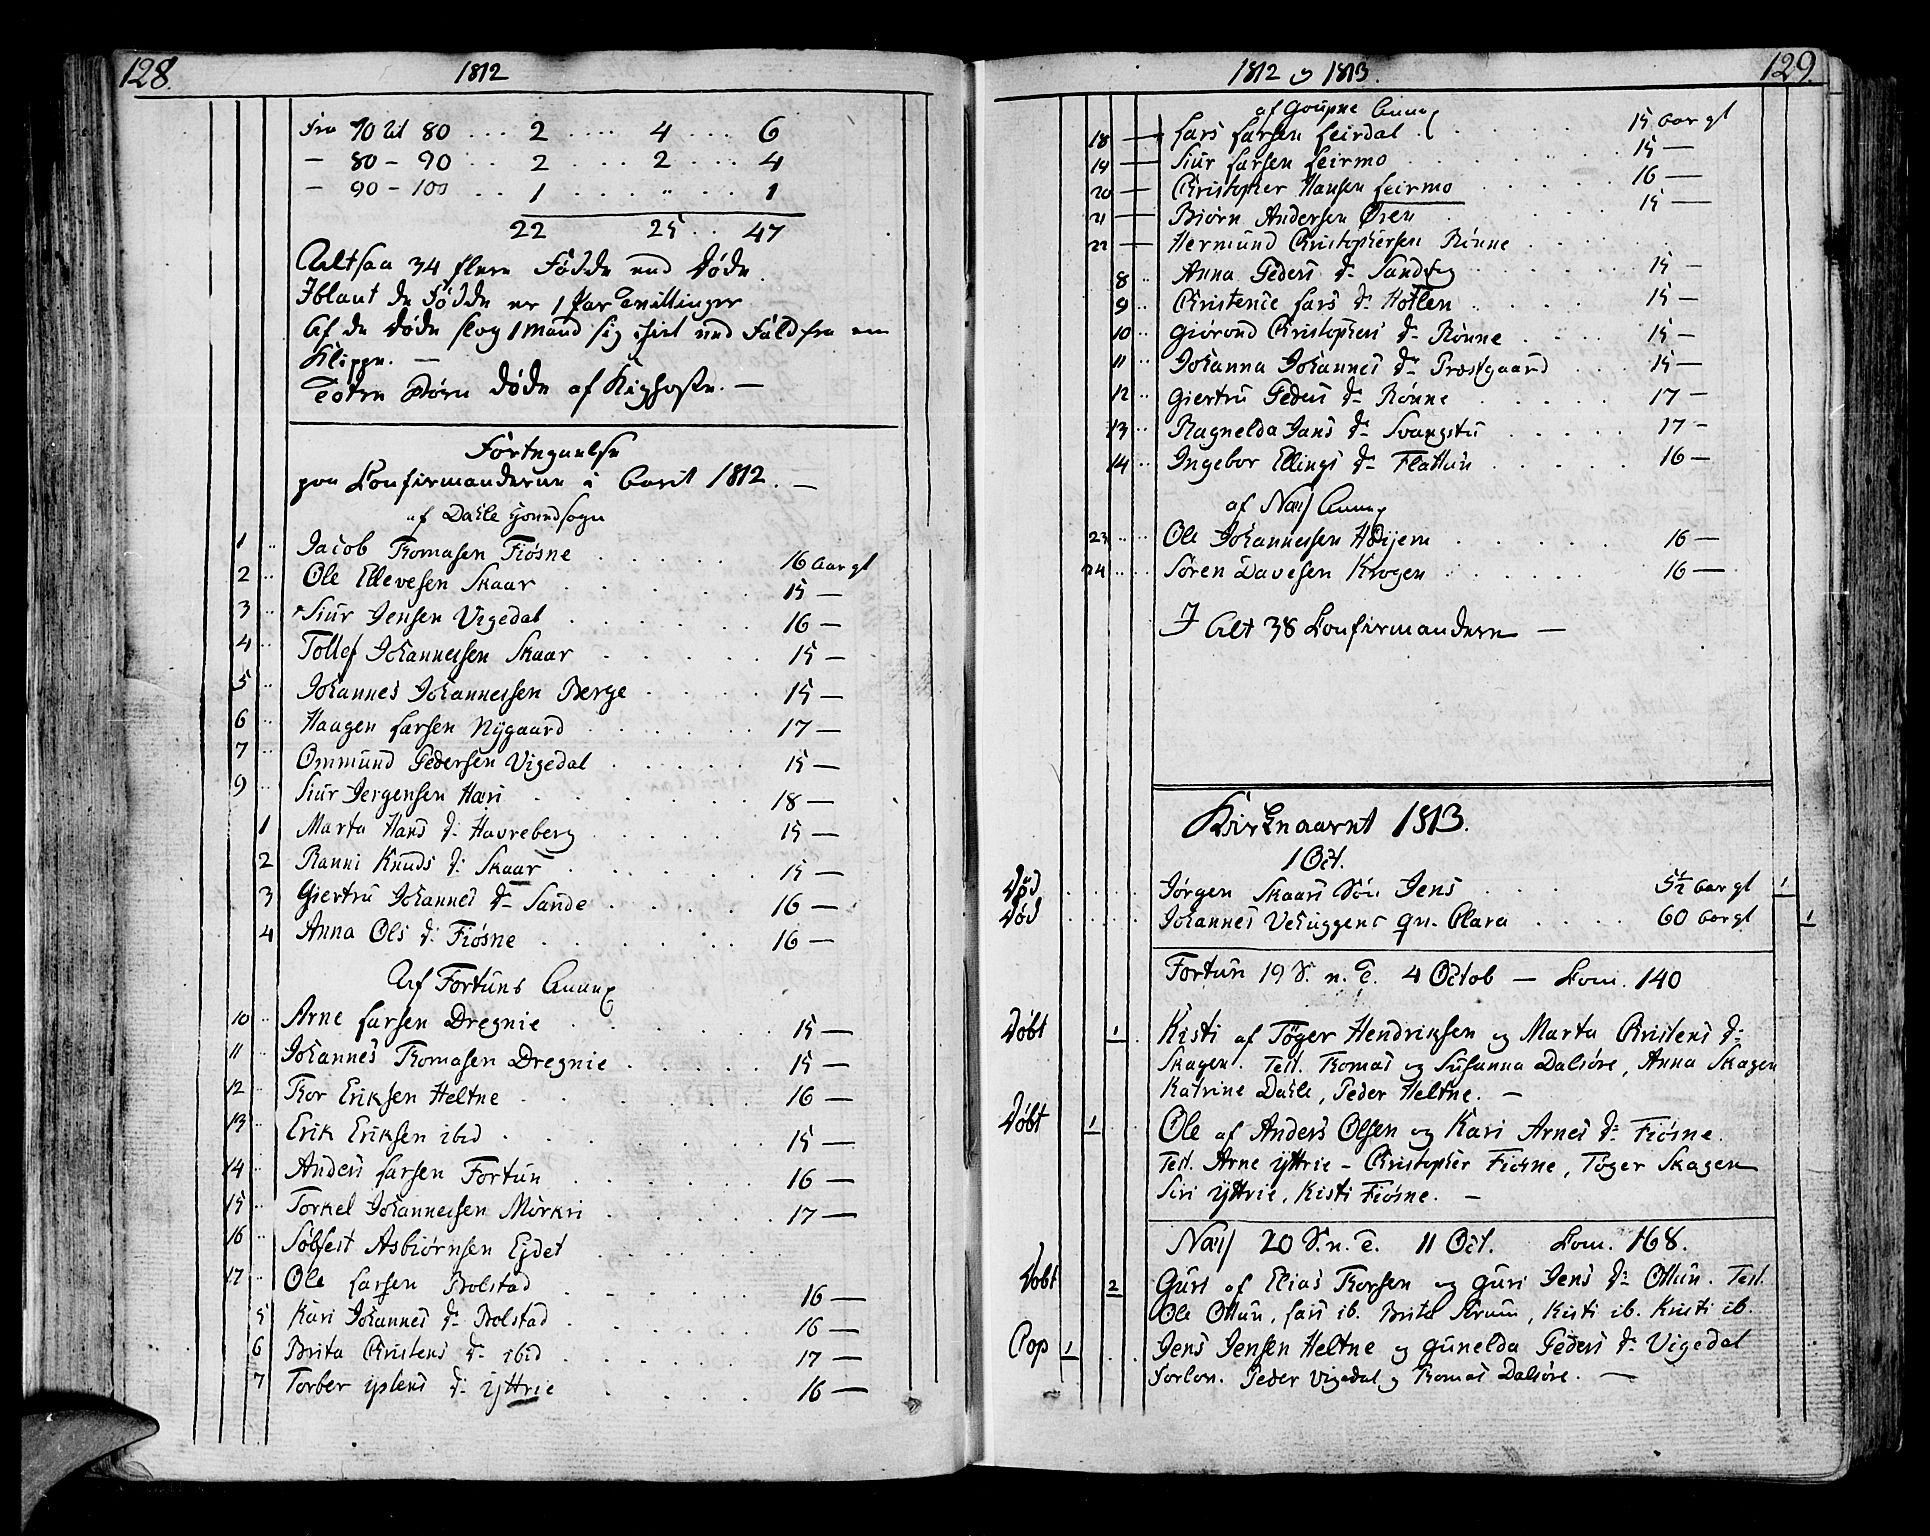 128.
1812
Fra 70 til 80 ... 2 .... 4 ... 6
— 80 - 90 ... 2 .... 2 ... 4
— 90 - 100 ... 1 .... „ .... 1
22 25 .. 47
Altsaa 34 flere Fødde end Døde
Iblant de Fødde er 1 Par Tvillinger
Af de Døde slog 1 Mand sig ihiel ved Fald fra en
Klippe. —
Børn døde af Kighoste. —
Fortegnelse
paa Confirmanderne i Aaret 1812. —
af Dahle Hovedsogn
1 .. Jacob Thomasen Fiøsne . . . . . 16 Aar gl
2 .. Ole Ellevesen Skaar . . . . . 15 —
3 .. Siur Jensen Vigedal . . . . . 16 —
4 .. Tollef Johannessen Skaar . . . . . 15 —
5 .. Johannes Johannessen Berge . . . . 15 —
6 .. Haagen Larsen Nÿgaard . . . . . 17 —
7 .. Ommund Pedersen Vigedal . . . . . 15 —
9 .. Siur Jergensen Hæri . . . . . 18 —
1 Marta Hans d: Havreberg . . . . . 15 —
2 Ranni Knuds d: Skaar . . . . . 15 —
3 Giertru Johannes d: Sande . . . . . 16 —
4 Anna Ols d: Fiøsne . . . . . 16 —
Af Fortuns Annex
10 .. Arne Larsen Dregnie . . . . . 15 —
11 .. Johannes Thomasen Dregnie . . . . . 15 —
12 .. Thor Eriksen Heltne . . . . . 16 —
13 .. Erik Eriksen ibid . . . . . 15 —
14 .. Anders Larsen Fortun . . . . . 16 —
15 .. Torkel Johannessen Mørkri . . . . . 17 —
16 .. Sølfest Asbiørnsen Ejdet . . . . .
17 .. Ole Larsen Bolstad . . . . . 16 —
5 Kari Johannes d: Bolstad . . . . . 16 —
6 Brita Christens d: ibid . . . . . 17 —
7 Torber d: ÿttrie . . . . . 16 —
129.
1812 og 1813.
af Goupne Annex
18 — Lars Larsen Leirdal . . . . . 15 Aar gl
19 — Siur Larsen Leirmo . . . . . 15 —
20 — Christopher Hansen Leirmo . . . . . 16 —
21 — Biørn Andersen Øien . . . . . 15 —
22 — Hermund Christophersen Rønne . . . .
8 .. Anna Peders d: . . . . . 15 —
9 .. Christense Lars d: . . . . . 15 —
10 .. Giørond Christophers d: Rønne . . . . 15 —
11 .. Johanna Johannes d: Præstgaard . . . 15 —
12 .. Giertru Peders d: Rønne . . . . . 17 —
13 .. Ragnelda Jans d: . . . . . 17 -
14 .. Ingebor Ellings d: Flattun . . . . . 16 —
af Næs Annex
23 .... Ole Johannessen Høijem . . . . . 16 —
24 .. Søren Davesen Krogen . . . . . 16 —
I Alt 38 Confirmandere —
Kirkeaaret 1813.
1 Oct.
Død . . . . Jørgen Skaars Søn Jens . . . 5½ Aar gl 1
Død . . . . Johannes Qv. Clara . . . . 60 Aar gl 1
Fortun 19 S. n. T. 4 Octob — Com. 140
Døbt 1 Kisti af Tøger Hendriksen og Marta Christens d:
Skagen. Test. Thomas og Susanna Dalsøre, Anna Skagen
Katrine Dahle, Peder Heltne. —
Døbt 1 Ole af Anders Olsen og Kari Arnes d: Fiøsne.
Test. Arne ÿttrie - Christopher Fiøsne, Tøger Skagen
Siri ÿttrie, Kisti Fiøsne. —
Næs 20 S. n. T. 11 Oct. Com. 168.
Døbt 2 Guri af Elias Thorsen og Guri Jens d: Ottun. Test.
Ole Ottun, Lars ib. Brita , Kisti ib. Kristi ib.
Cop 1 Jens Jensen Heltne og Gunelda Peders d: Vigedal
Forlov. Peder Vigedal og Thomas Dalsøre. —